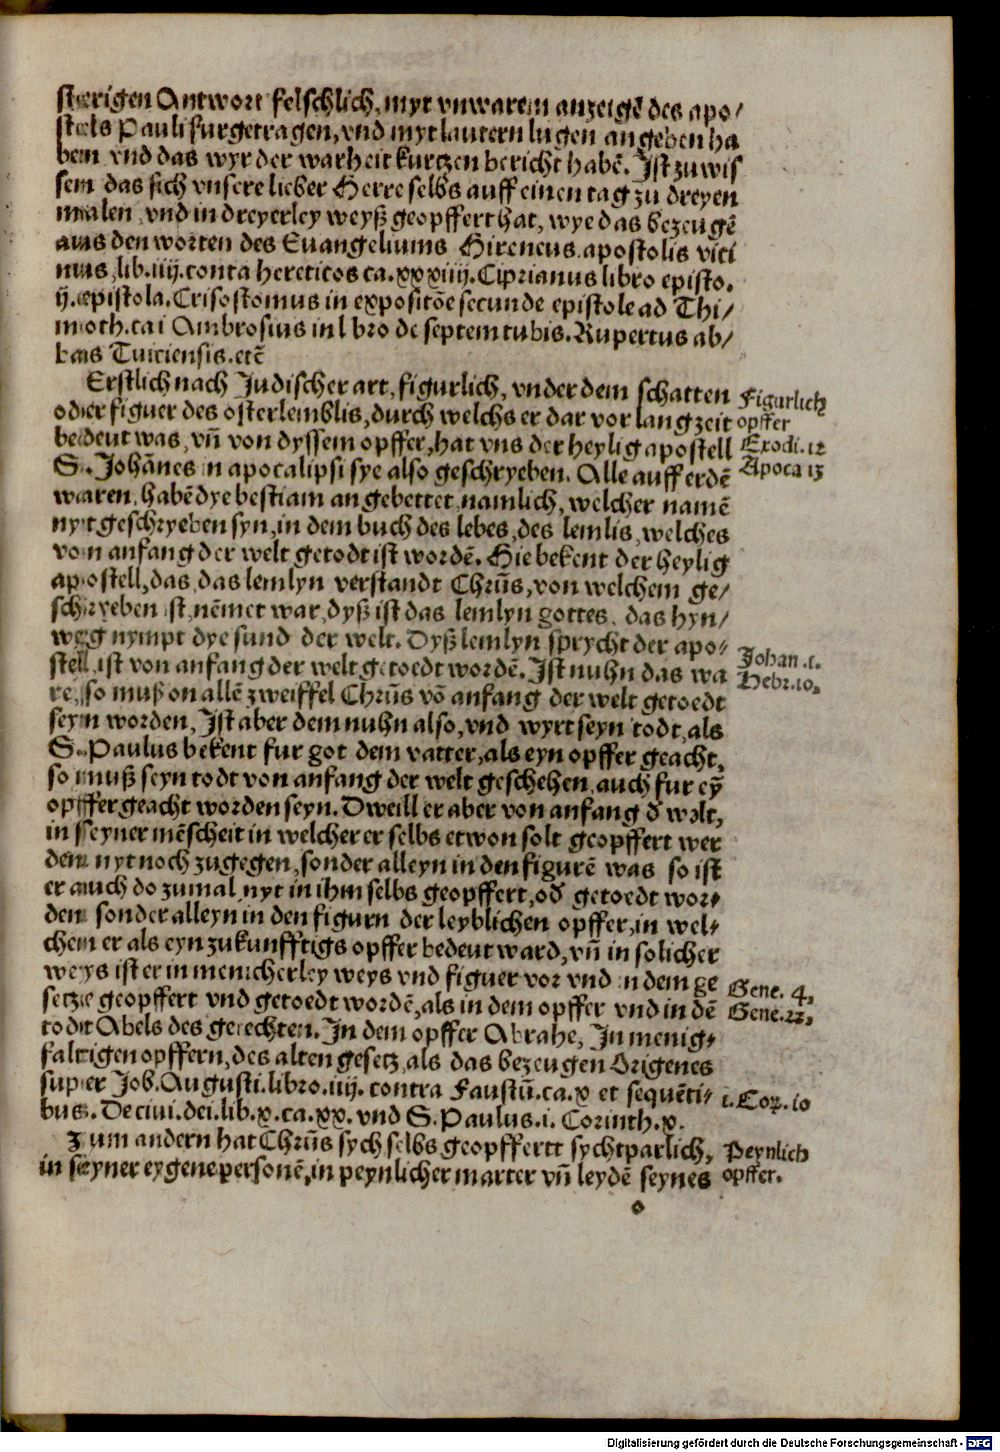 stierigen Antwort felschlich, myt vnwarem anzeigẽ des apo/
stels Pauli furgetragen, vnd myt lautern lugen angeben ha
ben vnd das wyr der warheit kurtzen bericht habẽ. Jst zu wis
sem das sich vnsere lieber Herre selbs auff einen tag zu dreyen
malen, vnd in dreyerley weyß geopffert hat, wye das bezeugẽ
aus den worten des Euangeliums Hireneus. apostolis vici
nus, lib. iiij. conta hereticos ca. xxxiiij. Ciprianus libro episto.
ij. epistola. Crisostomus in expositõe secunde epistole ad Thi/
moth. ca i Ambrosius in l bro de septem tubis. Rupertus ab/
bas Tuiciensis. etẽ
Erstlich nach Judischer art, figurlich, vnder dem schatten
oder figuer des osterlemblis, durch welchs er dar vor lang zeit
bedeut was, vñ von dyssem opffer, hat vns der heylig apostell
S. Johãnes in apocalipsi sye also geschryeben. Alle auff erdẽ
waren, habẽ dye bestiam angebettet, namlich, welcher namẽ
nyt geschryeben syn, in dem buch des lebẽs, des lemlis, welches
von anfang der welt getodt ist wordẽ. Hie bekent der heylig
apostell, das, das lemlyn verstandt Chrũs, von welchem ge/
schryeben ist, nẽmet war, dyß ist das lemlyn gottes, das hyn/
weg nympt dye sund der welt. Dyß lemlyn sprycht der apo/
stell, ist von anfang der welt getoedt wordẽ. Jst nuhn das wa
re, so muß on allẽ zweiffel Chrũs võ anfang der welt getoedt
seyn worden, Jst aber dem nuhn also, vnd wyrt seyn todt, als
S. Paulus bekent fur got dem vatter, als eyn opffer geacht,
so muß seyn todt von anfang der welt geschehen, auch fur eỹ
opffer geacht worden seyn. Dweill er aber von anfang ď welt,
in seyner mẽscheit in welcher er selbs etwon solt geopffert wer
den nyt noch zugegen, sonder alleyn in den figurẽ was so ist
er auch do zumal nyt in ihm selbs geopffert, oď getoedt wor/
den sonder alleyn in den figurn der leyblichen opffer, in wel/
chem er als eyn zukunfftigs opffer bedeut ward, vñ in solicher
weys ist er in mennicherley weys vnd figuer vor vnd in dem ge
setze geopffert vnd getoedt wordẽ, als in dem opffer vnd in dẽ
todt Abels des gerechten. Jn dem opffer Abrahe, Jn menig/
faltigen opffern, des alten gesetz, als das bezeugen Origenes
super Job. Augusti. libro. iiij. contra Faustũ. ca. x et sequẽti/
bus. De ciui. dei. lib. x. ca. xx. vnd S. Paulus. i. Corinth. x.
Zum andern hat Chrũs sych selbs geopffertt sychtparlich,
in seyner eygene personẽ, in peynlicher marter vñ leydẽ seynes
Figurlich
opffer
Exodi. 12
Apoca 13
Johan .1.
Hebr. 10.
Gene. 4.
Gene. 22.
i. Cor. 10
Peynlich
opffer.
Digitalisierung gefördert durch die Deutsche Forschungsgemeinschaft - DFG